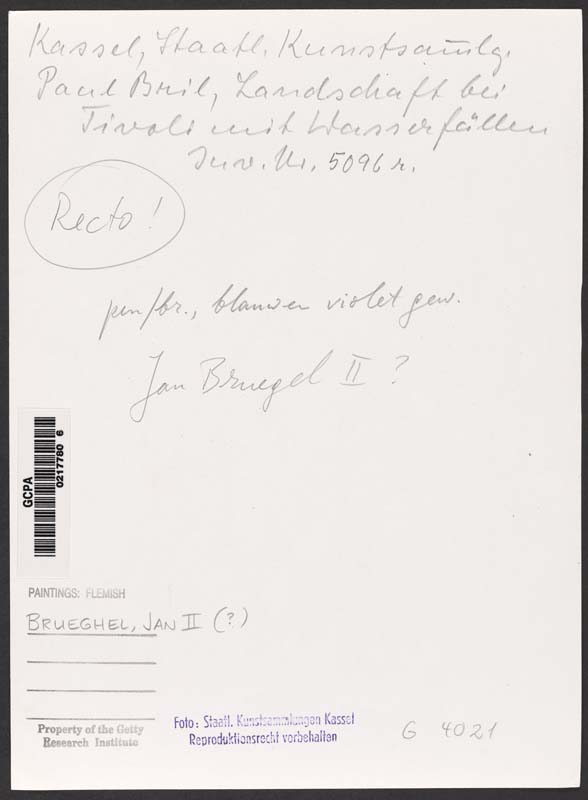 Kassel, Staatl. Kunstsamlg.
Paul Bril, Landschaft bei
Tivoli mit Wasserfällen
Inv. Nr. 5096 r.
Recto!
pen/br., blauw en violet gew.
Jan Bruegel II ?
GCPA
0217780 6
PAINTINGS: FLEMISH
BRUEGHEL, JAN II (?)
Property of the Getty
Research Institute
Foto: Staatl. Kunstsammlungen Kassel
Reproduktionsrecht vorbehalten
G 4021